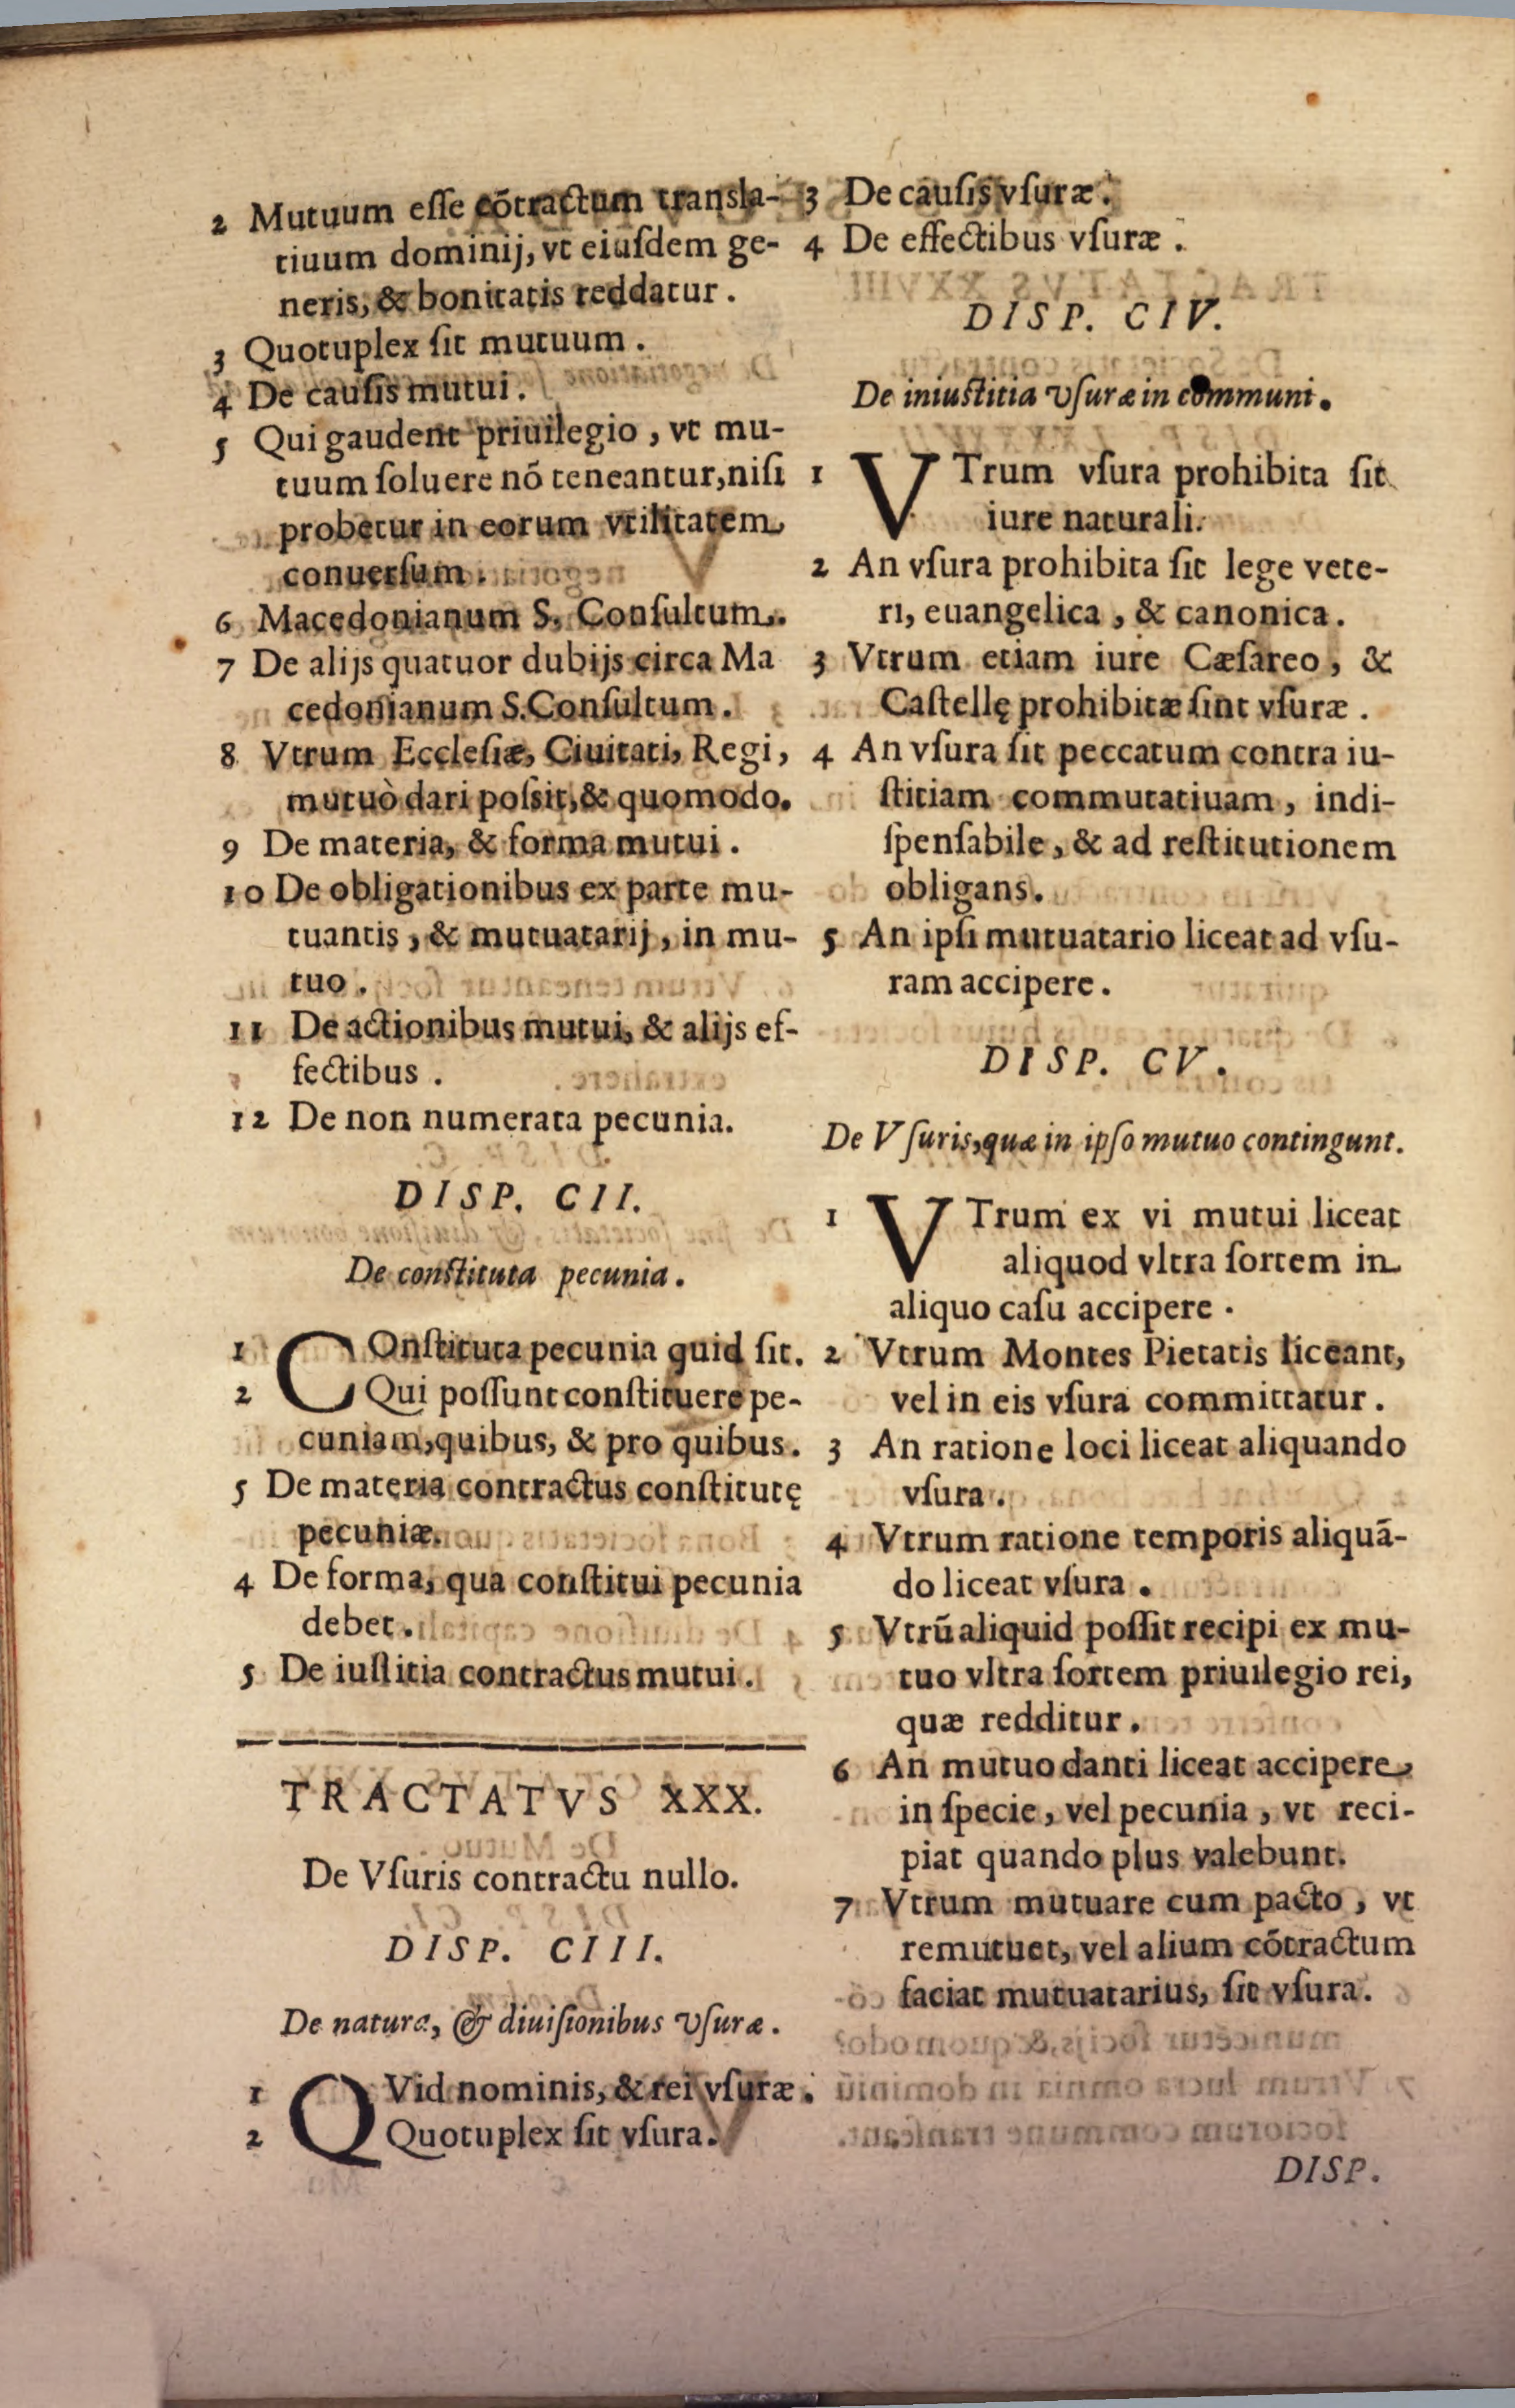 2 Mutuum eſſe cōtractum transla-
tiuum dominij, vt eiuſdem ge-
neris, & bonitatis reddatur.
3 Quotuplex ſit mutuum.
4 De cauſis mutui.
5 Qui gaudent priuilegio, vt mu-
tuum ſoluere nō teneantur, niſi
probetur in eorum vtilitatem
conuerſum.
6 Macedonianum S. Conſultum.
7 De alijs quatuor dubijs circa Ma
cedonianum S. Conſultum.
8 Vtrum Eccleſiæ, Ciuitati, Regi,
mutuò dari poſsit, & quomodo.
9 De materia, & forma mutui.
10 De obligationibus ex parte mu-
tuantis, & mutuatarij, in mu-
tuo.
11 De actionibus mutui, & alijs ef-
fectibus.
12 De non numerata pecunia.
DISP. CII.
De conſtituta pecunia.
1 COnſtituta pecunia quid ſit.
2 Qui poſſunt conſtituere pe-
cuniam, quibus, & pro quibus.
5 De materia contractus conſtitutę
pecuniæ.
4 De forma, qua conſtitui pecunia
debet.
5 De iuſtitia contractus mutui.
TRACTATVS XXX.
De Vſuris contractu nullo.
DISP. CIII.
De natura, & diuiſionibus vſuræ.
1 QVid nominis, & rei vſuræ.
2 Quotuplex ſit vſura.
3 De cauſis vſuræ.
4 De effectibus vſuræ.
DISP. CIV.
De iniuſtitia vſuræ in communi.
1 VTrum vſura prohibita ſit
iure naturali.
2 An vſura prohibita ſit lege vete-
ri, euangelica, & canonica.
3 Vtrum etiam iure Cæſareo, &
Caſtellę prohibitæ ſint vſuræ.
4 An vſura ſit peccatum contra iu-
ſtitiam commutatiuam, indi-
ſpenſabile, & ad reſtitutionem
obligans.
5 An ipſi mutuatario liceat ad vſu-
ram accipere.
DISP. CV.
De Vſuris, quæ in ipſo mutuo contingunt.
1 VTrum ex vi mutui liceat
aliquod vltra ſortem in
aliquo caſu accipere.
2 Vtrum Montes Pietatis liceant,
vel in eis vſura committatur.
3 An ratione loci liceat aliquando
vſura.
4 Vtrum ratione temporis aliquā-
do liceat vſura.
5 Vtrū aliquid poſſit recipi ex mu-
tuo vltra ſortem priuilegio rei,
quæ redditur.
6 An mutuo danti liceat accipere
in ſpecie, vel pecunia, vt reci-
piat quando plus valebunt.
7 Vtrum mutuare cum pacto, vt
remutuet, vel alium cōtractum
faciat mutuatarius, ſit vſura.
DISP.